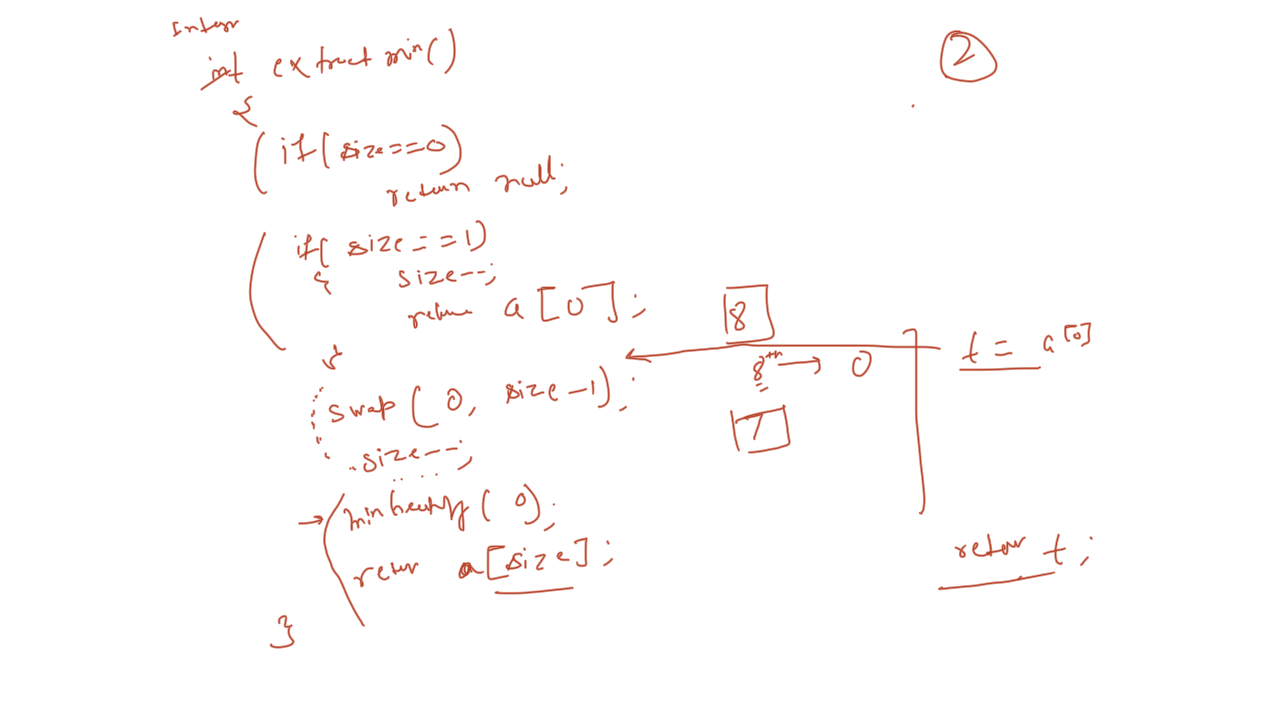 Integr
int extract min()
{
if(size==0)
return null;
if(size==1)
{ size--;
return a[0];
}
swap(0, size-1);
size--;
minheapify(0);
return a[size];
}
2
8
8th → 0
7
t = a[0]
return t;